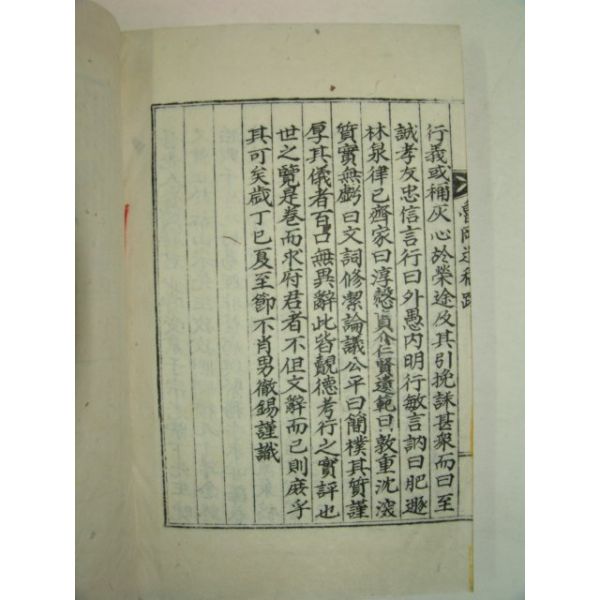 行義或稱灰心於榮途及其引挽誄甚衆而曰至
誠孝友忠信言行曰外愚内明行敏言訥曰肥遯
林泉律己齊家曰淳慤貞介仁賢遺範曰敦重沈
質實無虧曰文詞修潔論議公平曰簡樸其質謹
厚其儀者百口無異辭此皆覿德考行之實評也
世之覽是卷而求府君者不但文辭而已則庶乎
其可矣歲丁巳夏至節不肖男徹錫謹識